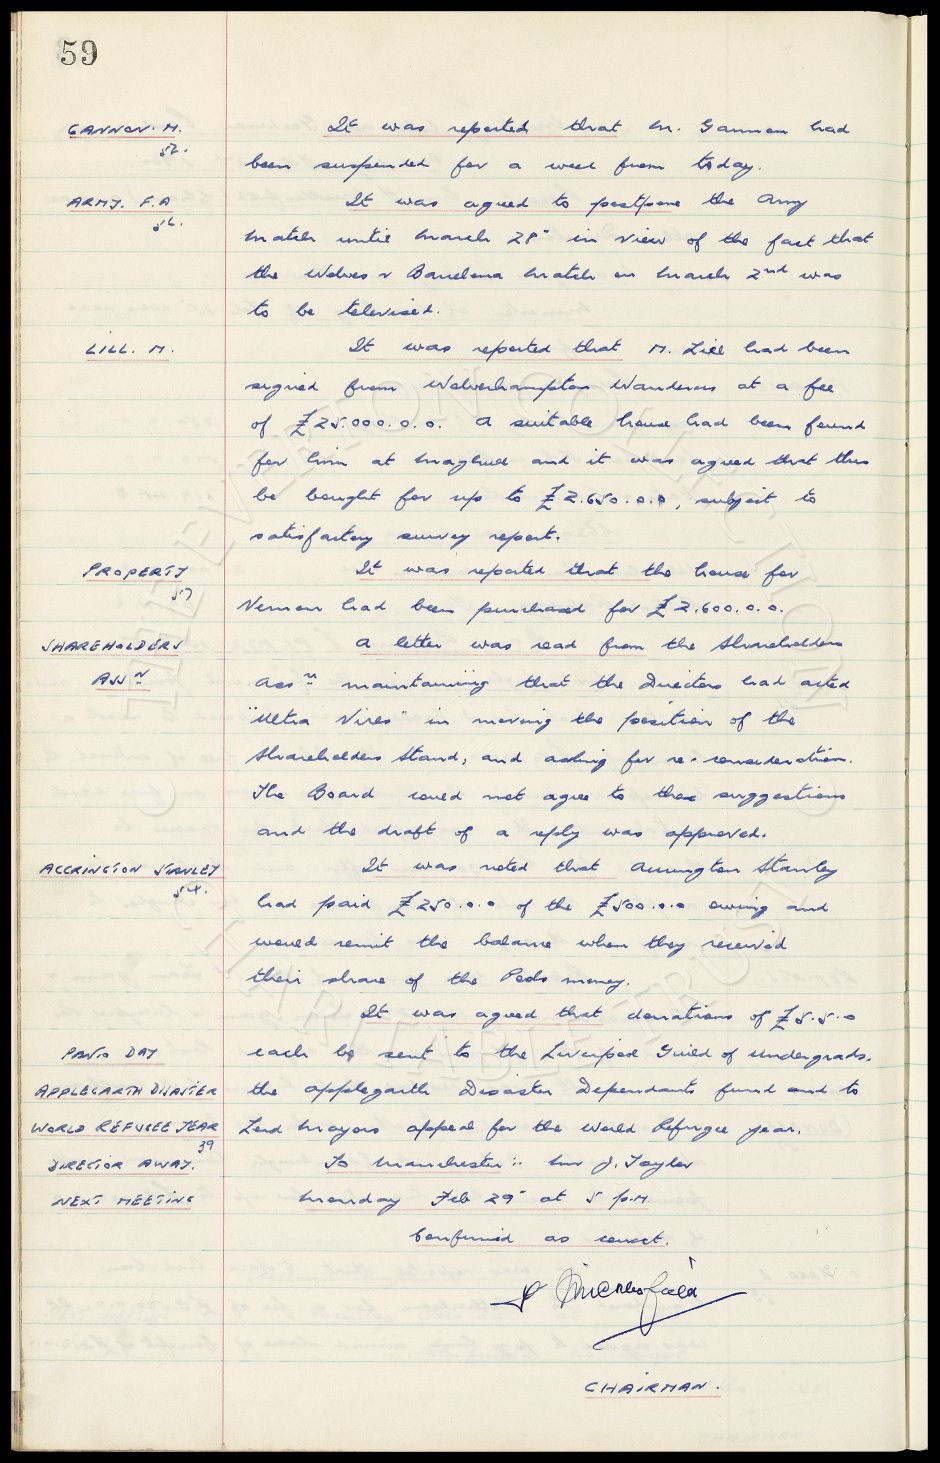 59
GANNON. M. It was reported that M. Gannon had
52. been suspended for a week from today.
ARMY. F.A It was agreed to postpone the Army
52. Match until March 28" in view of the fact that
the Wolves v Barcelona match on March 2nd was
to be televised.
LILL. M. It was reported that M. Lill had been
signed from Wolverhampton Wanderers at a fee
of £25.000.0.0. A suitable house had been found
for him at Maghull and it was agreed that this
be bought for up to £2.650.0.0, subject to
satisfactory survey report.
PROPERTY It was reported that the house for
57 Vernon had been purchased for £2.600.0.0.
SHAREHOLDERS A letter was read from the Shareholders
ASSN Assn maintaining that the Directors had acted
"Ultra Vires" in moving the position of the
Shareholders Stand, and asking for re-consideration.
The Board could not agree to these suggestions
and the draft of a reply was approved.
ACCRINGTON STANLEY It was noted that Accrington Stanley
54. had paid £250.0.0 of the £500.0.0 owing and
would remit the balance when they received
their share of the Pools money.
It was agreed that donations of £5.5.0
PANTO DAY each be sent to the Liverpool Guild of Undergrads.
APPLEGARTH DISASTER the Applegarth Disaster Dependants fund and to
WORLD REFUGEE YEAR Lord Mayors appeal for the World Refugee year.
39
DIRECTOR AWAY. To Manchester:- Mr J. Taylor
NEXT MEETING Monday Feb 29" at 5 p.m
Confirmed as correct.
CHAIRMAN.
THE EVERTON COLLECTION
CHARITABLE TRUST